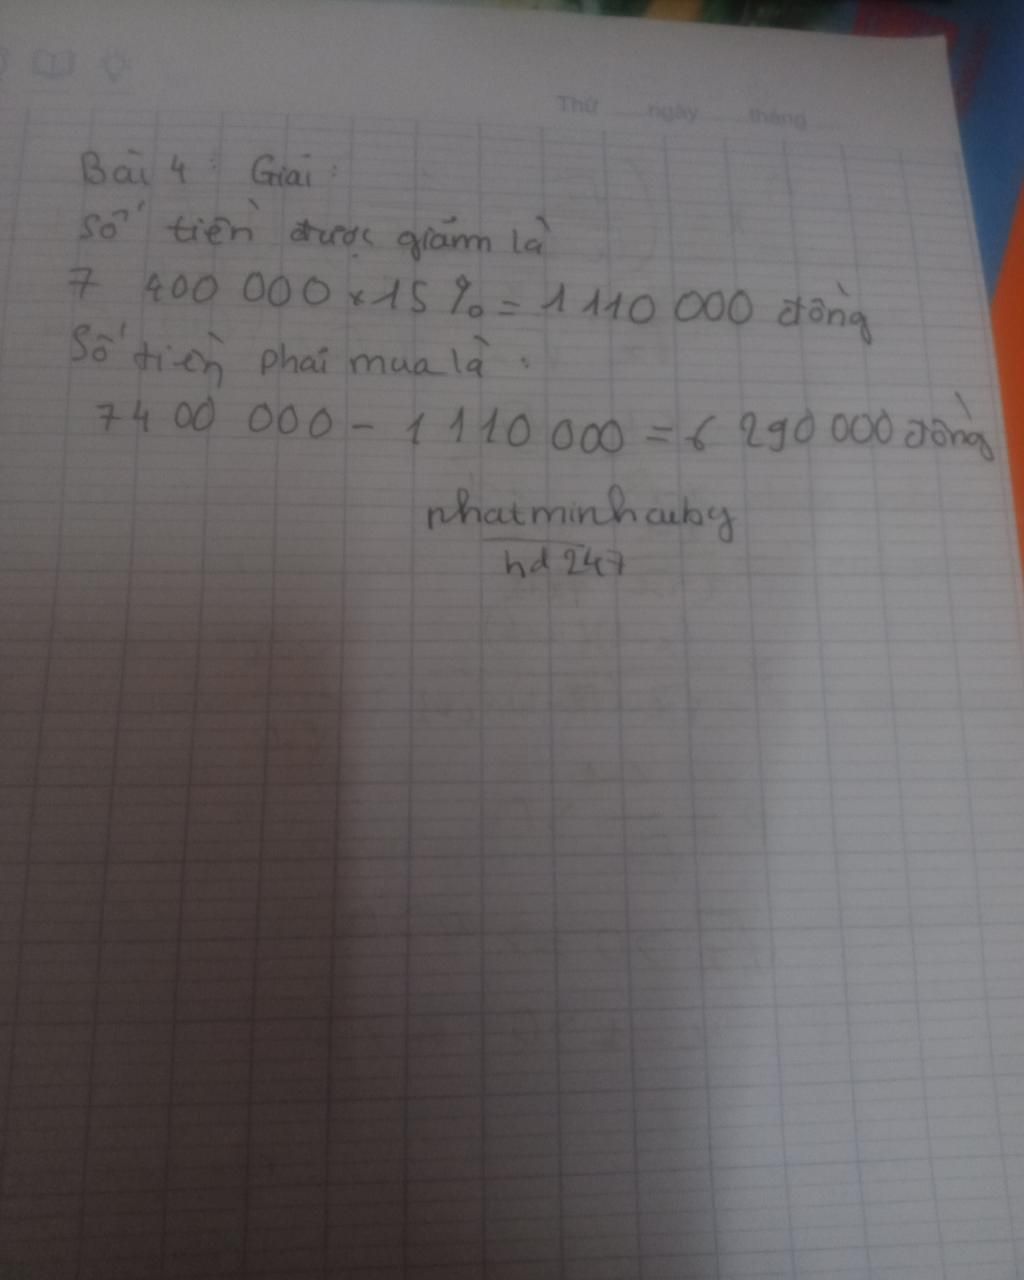 Thứ ngày tháng
Bài 4: Giải:
Số tiền được giảm là
7 400 000 × 15% = 1 110 000 đồng
Số tiền phải mua là:
7 400 000 - 1 110 000 = 6 290 000 đồng
nhatminhauby
hd 247